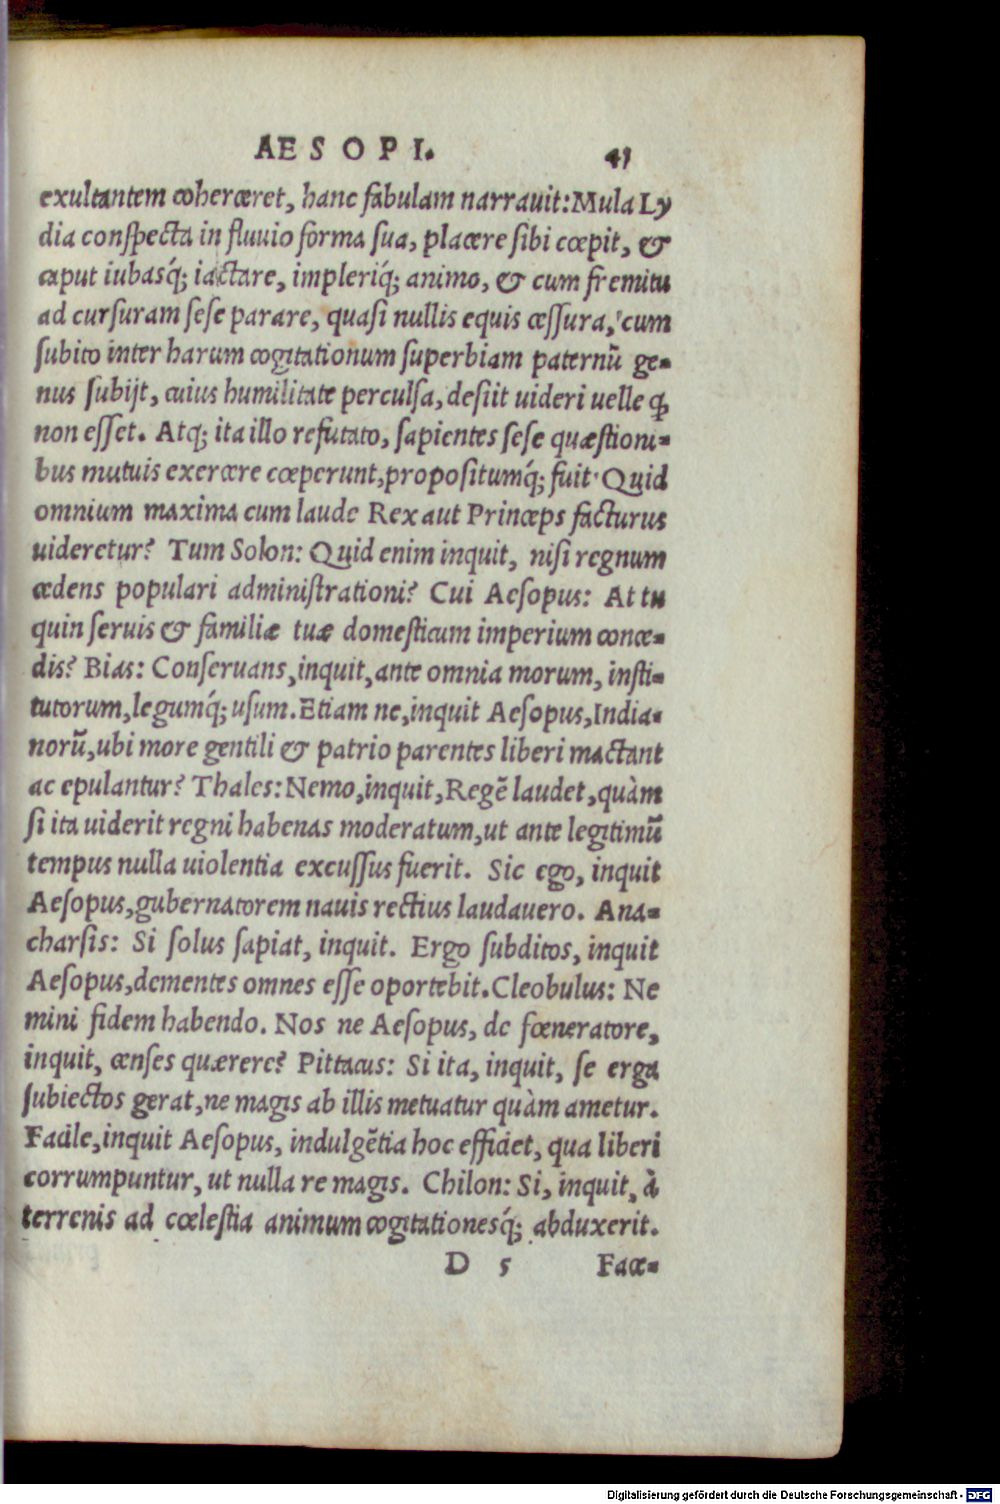 AESOPI. 41
exultantem coherceret, hanc fabulam narrauit: Mula Ly
dia conspecta in fluuio forma sua, placere sibi cœpit, &
caput iubasq́; iactare, impleriq́; animo, & cum fremitu
ad cursuram sese parare, quasi nullis equis cessura, cum
subito inter harum cogitationum superbiam paternũ ge-
nus subijt, cuius humilitate perculsa, desiit uideri uelle ꝙ
non esset. Atq; ita illo refutato, sapientes sese quæstioni-
bus mutuis exercere cœperunt, propositumq́; fuit. Quid
omnium maxima cum laude Rex aut Princeps facturus
uideretur? Tum Solon: Quid enim inquit, nisi regnum
cedens populari administrationi? Cui Aesopus: At tu
quin seruis & familiæ tuæ domesticum imperium conce-
dis? Bias: Conseruans, inquit, ante omnia morum, insti-
tutorum, legumq́; usum. Etiam ne, inquit Aesopus, India-
norũ, ubi more gentili & patrio parentes liberi mactant
ac epulantur? Thales: Nemo, inquit, Regẽ laudet, quàm
si ita uiderit regni habenas moderatum, ut ante legitimũ
tempus nulla uiolentia excussus fuerit. Sic ego, inquit
Aesopus, gubernatorem nauis rectius laudauero. Ana-
charsis: Si solus sapiat, inquit. Ergo subditos, inquit
Aesopus, dementes omnes esse oportebit. Cleobulus: Ne
mini fidem habendo. Nos ne Aesopus, de fœneratore,
inquit, censes quærere? Pittacus: Si ita, inquit, se erga
subiectos gerat, ne magis ab illis metuatur quàm ametur.
Facile, inquit Aesopus, indulgẽtia hoc efficiet, qua liberi
corrumpuntur, ut nulla re magis. Chilon: Si, inquit, à
terrenis ad cœlestia animum cogitationesq́; abduxerit.
D 5 Face-
Digitalisierung gefördert durch die Deutsche Forschungsgemeinschaft - DFG